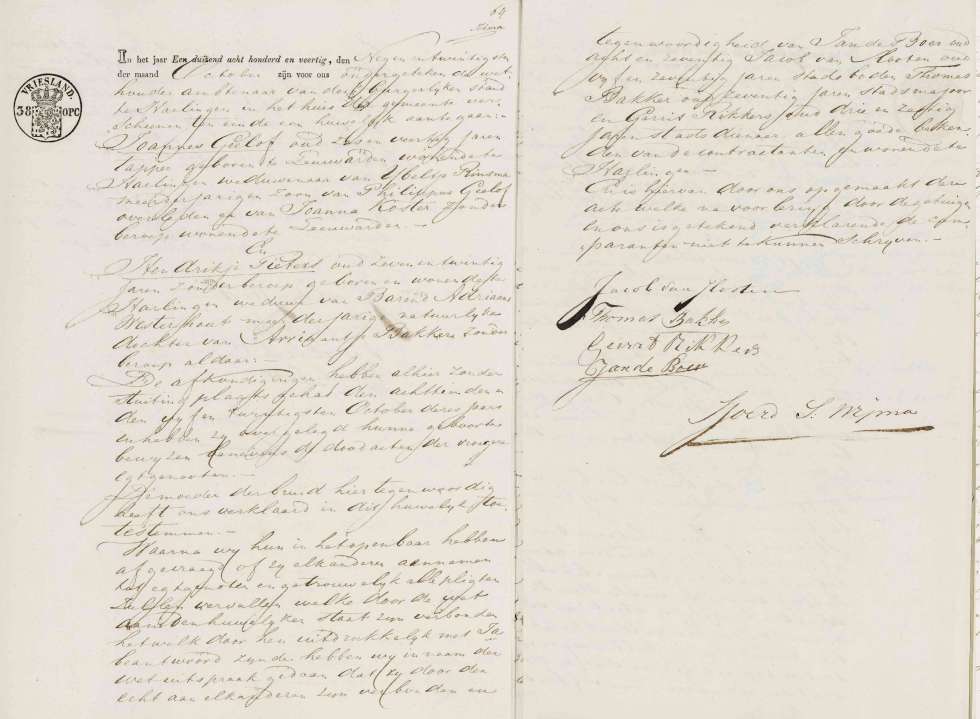 64
VRIESLAND.
38 OPC
In het jaar Een duizend acht honderd en veertig, den Negen en twintigsten
der maand October zijn voor ons ondergeteekende wet
houder ambtenaar van den Burgerlyken stand
te Harlingen in het huis der gemeente ver
scheenen ten einde een huwelyk aantegaan:
Joannes Gielof oud zes en veertig jaren
tapper geboren te Leeuwarden wonende te
Harlingen weduwnaar van Ybeltje Hinsma
meerderjarigen zoon van Philippus Gielof
overleden en van Joanna Koster zonder
beroep wonende te Leeuwarden.—
En
Hendrikje Pieters oud zeven en twintig
jaren zonder beroep geboren en wonende te
Harlingen weduwe van Barend Adriaans
Westerhout meerderjarige natuurlyke
dochter van Bakker zonder
beroep aldaar:—
De afkondigingen hebben alhier zonder
stuiting plaats gehad den achttienden en
den vyf en twintigsten October dezes jaars
en hebben zy overgelegd hunne geboorte
bewyzen benevens de doodacten der vroegere
egtgenooten.—
De moeder der bruid hier tegenwoordig
heeft ons verklaard in dit huwelyk toe
testemmen.—
Waarna wy hun in het openbaar hebben
afgevraagd of zy elkanderen aannemen
tot egtgenoten en getrouwelyk alle pligten
zullen vervullen welke door de wet
aan den huwelyken staat zyn verbonden
het welk door hen uitdrukkelyk met Ja
beantwoord zynde hebben wy in naam der
wet uitspraak gedaan dat zy door den
echt aan elkanderen zyn verbonden in
tegenwoordigheid van Jan de Boer oud
acht en zeventig Jacob van Slooten oud
vyf en zeventig jaren stadsboden Thomas
Bakker oud zeventig jaren stadsmajoor
en Gerrit Rikkers oud drie en zestig
jaren stads dienaar allen goede beken
den van de contractanten en wonende te
Harlingen—
En is hiervan door ons opgemaakt deze
acte welke na voorlezing door de getuigen
en ons is getekend verklarende de com
paranten niet te kunnen schryven.—
Jacob van Slooten
Thomas Bakker
Gerrit Rikkers
Jan de Boer
Sjoerd S. Wijma